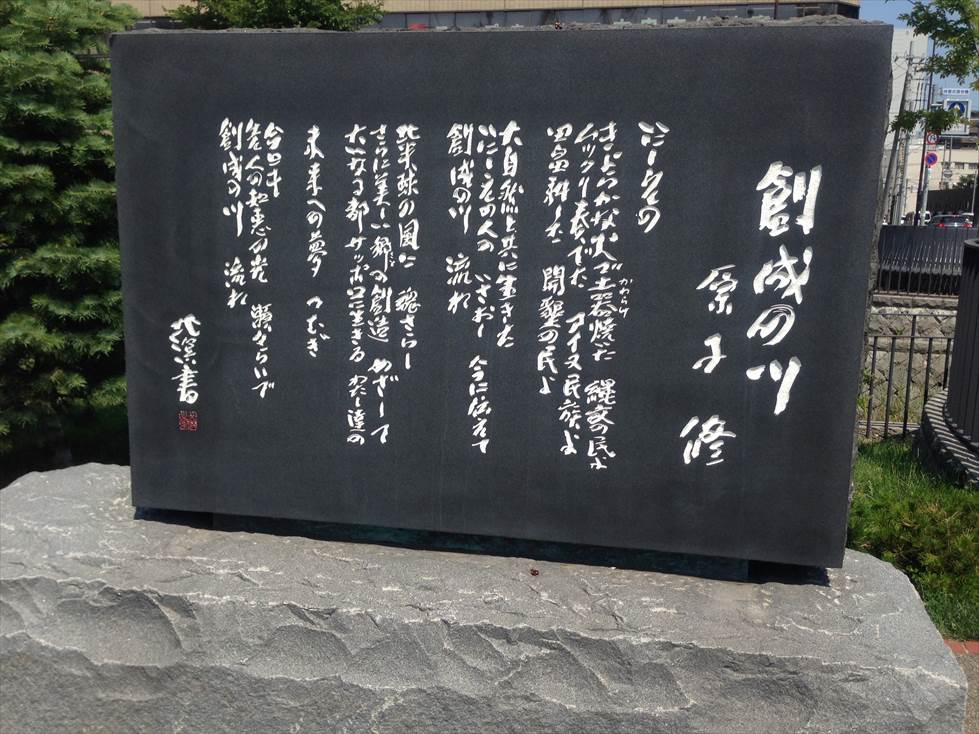 創成の川
原子修
いにしえの
きよらかな水で土器焼いた 縄文の民よ
かわらけ
ムックリ奏でた アイヌ民族よ
田畠耕した 開墾の民よ
大自然と共に生きた
いにしえの人の いさおし 今に伝えて
創成の川 流れ
北半球の風に 魂さらし
さらに美しい都の創造 めざして
大いなる都 サッポロに生きる わたし達の
未来への夢 つむぎ
今日も
先人の知恵の光 瀬々らいで
創成の川 流れ
北溟書